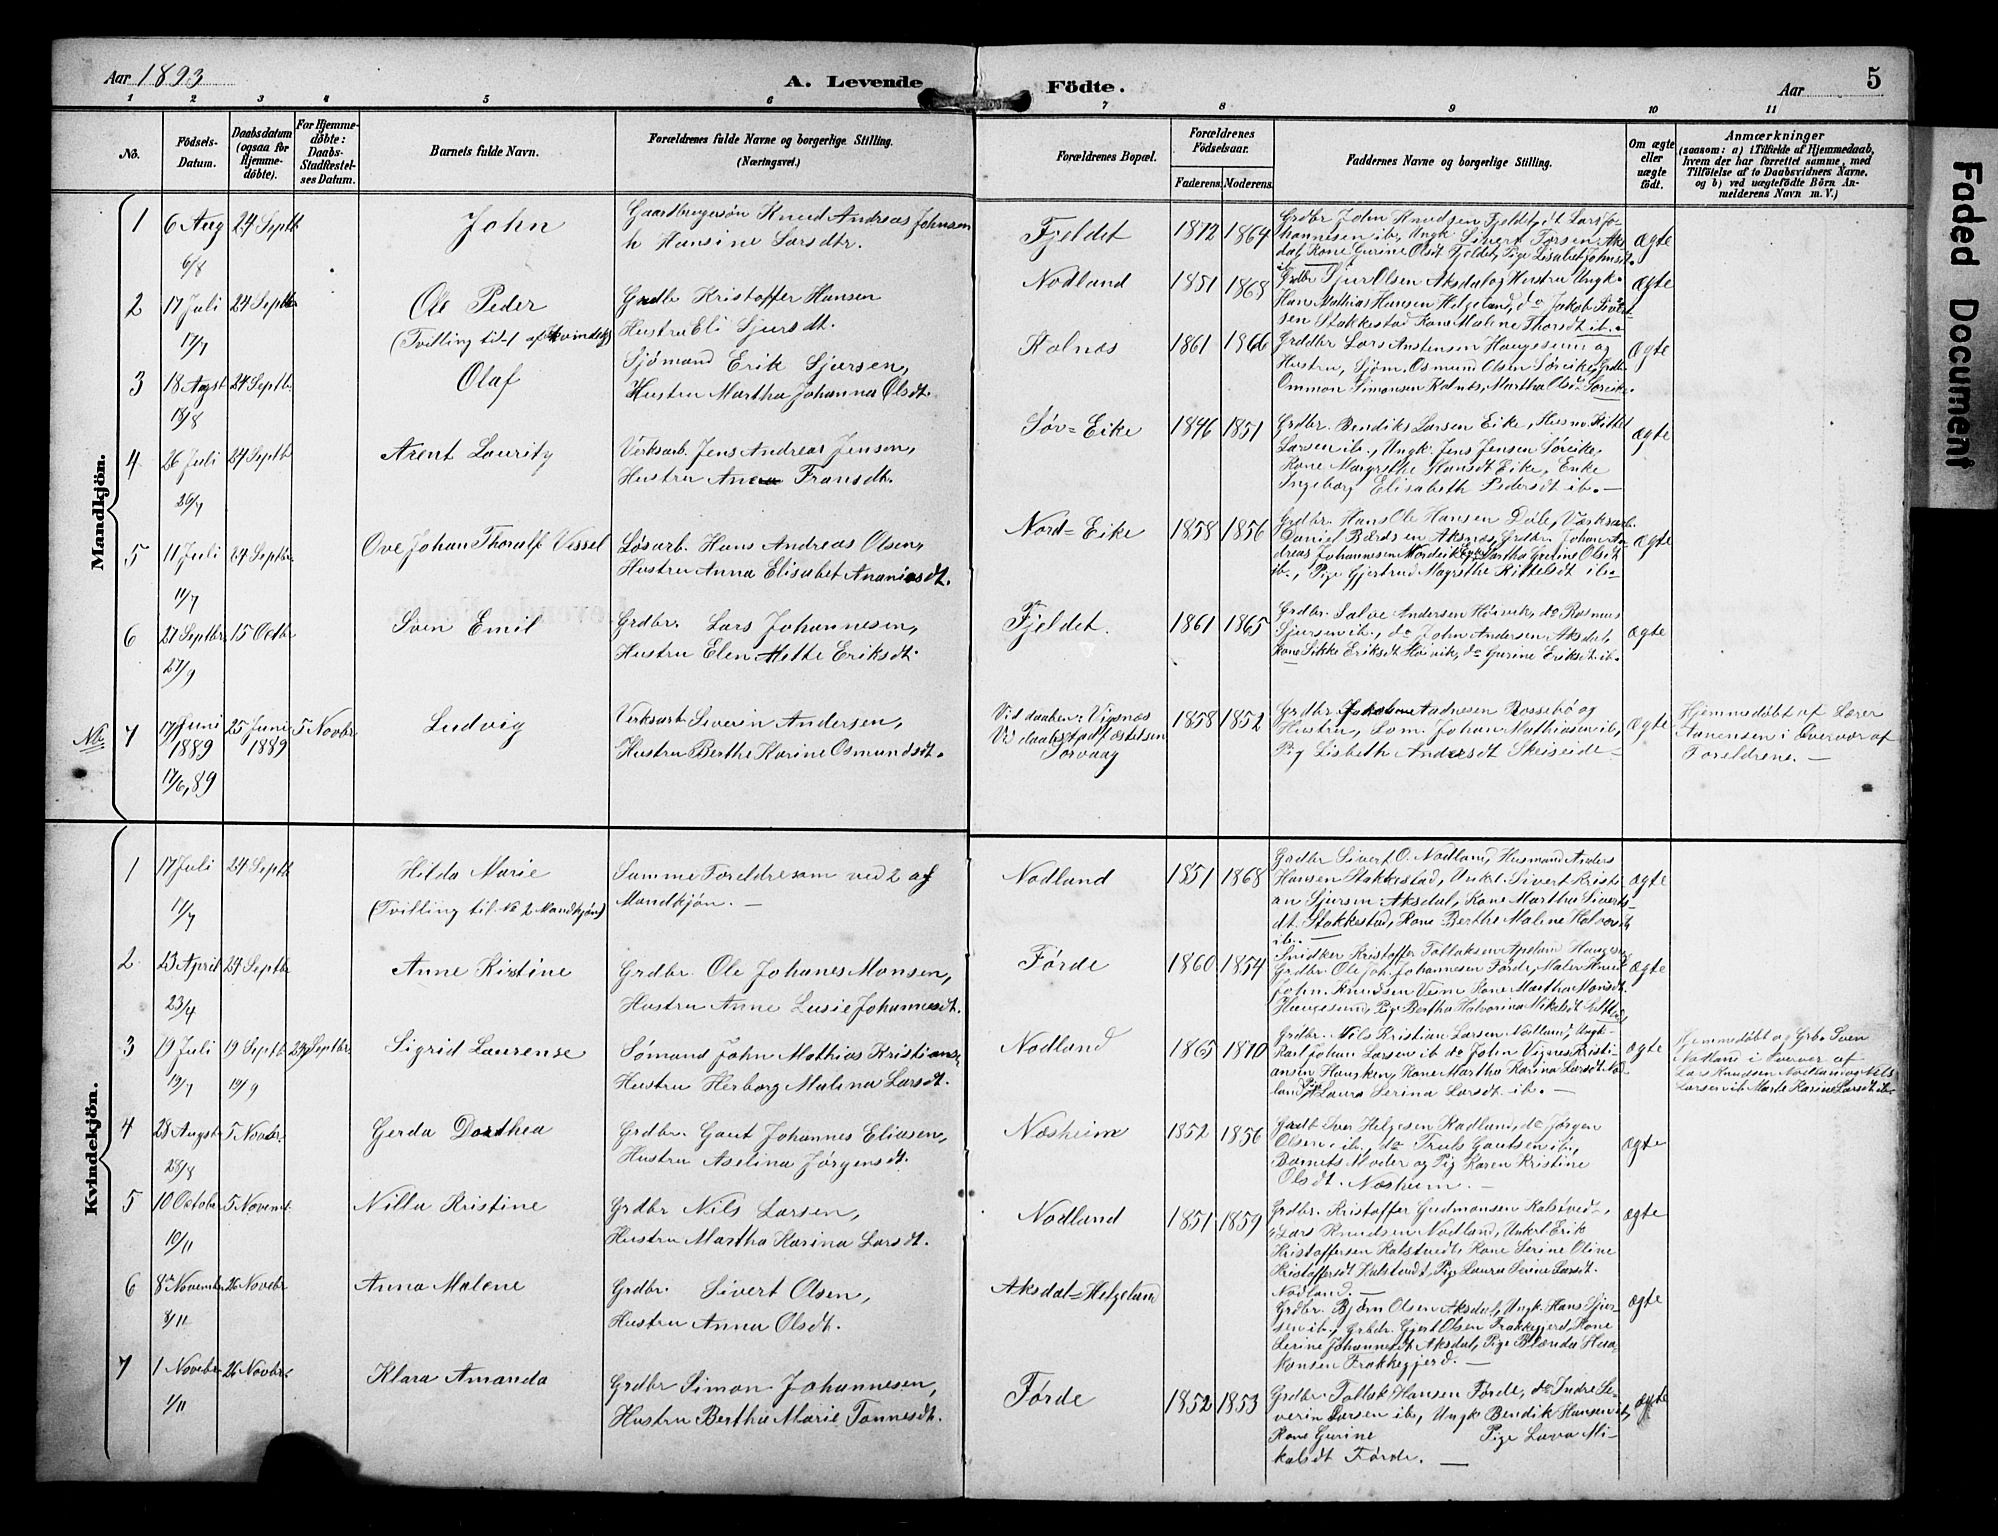 Aar 1893
A. Levende
Födte.
Aar
5
Faded Document
1 2 3 4 5 6 7 8 9 10 11
No.
Födsels-Datum.
Daabsdatum (ogsaa for Hjemme-döbte).
For Hjemme-döbte: Daabs-Stadfæstel-ses Datum.
Barnets fulde Navn.
Forældrenes fulde Navne og borgerlige Stilling.
(Næringsvei.)
Forældrenes Bopæl.
Forældrenes Födselsaar.
Faderens. Moderens.
Faddernes Navne og borgerlige Stilling.
Om ægte eller uægte födt.
Anmærkninger
(saasom: a) i Tilfælde af Hjemmedaab, hvem der har forrettet samme, med Tilföielse af to Daabsvidners Navne, og b) ved uægtefödte Börn An-melderens Navn m. V.)
Mandkjön.
1 6 Aug 24 Septb John Gaardbrugersøn Knud Andreas Johnsen
6/8 h Hansine Larsdtr.
Fjeldet 1872 1864 Grdbr John Knudsen Fjeldet, dt Lars Jo-
hannesen ib, Ungk Sivert Torsen Aks
dal, Kone Gurine Olsdt Fjeldet, Pige Lisabet Johnsdt ib ægte
2 17 Juli 24 Septbr Ole Peder Grdb Kristoffer Hansen
17/7 (Tvilling til 1 af Kvindekj) Hustru Eli Sjursdt.
Nodland 1851 1868 Grdbr Sjur Olsen Aksdal og Hustru Ungk.
Hans Mathias Hansen Helgeland, do Jakob Sivert-
sen Stakkestad Kone Malene Thorsdt ib. ægte
3 18 Augst 24 Septb. Olaf Sjömand Erik Sjursen,
18/8 Hustru Martha Johanna Olsdt.
Kolnæs 1861 1866 Grddbr Lars Austensen Haugesund og
Hustru, Sjøm. Osmund Olsen Søreike, Grdbr
Ommon Simonsen Kolnæs, Martha Olsdt Søreike. ægte
4 26 Juli 24 Septb. Arent Lauritz Verksarb. Jens Andreas Jenson,
26/7 Hustru Anna Fransdt.
Søv=Eike 1846 1851 Grdbr. Bendiks Larsen Eike, Husm Kittel
Larsen ib., Ungk. Jens Jensen Søreike,
Kone Margrethe Hansdt Eike, Enke
Ingeborg Elisabeth Pedersdt ib. — ægte
5 11 Juli 24 Septbr. Ove Johan Thoralf Vessel Løsarb. Hans Andreas Olsen,
11/7 Hustru Anna Elisabet Ananiasdt.
Nord=Eike 1858 1856 Grdbr. Hans Ole Hansen Døle, Værksarb.
Daniel Bærdsen Aksnæs, Grdbr. Johan An
dreas Johannesen Nordeike, Enke Martha Gurine Olsdt
ib., Pige Gjertrud Magrethe Kittelsdt ib. ægte
6 27 Septbr. 15 Octbr. Sven Emil Grdbr. Lars Johannesen,
27/9 Hustru Elen Mette Eriksdt.
Fjeldet. 1861 1865 Grdbr. Salve Andersen Høivik, do Rasmus
Sjursen ib., do John Andersen Aksdal,
Kone Sikke Eriksdt Høivik, do Gurine Eriksdt ib. ægte
Nb. 7 17 Juni 1889 25 Juni 1889 5 Novbr. Ludvig Verksarb Severin Andersen,
17/6, 89 Hustru Berthe Karine Osmundsdt.
Vid daaben: Vigsnæs
Ved daabsstadfæstelsen
Torvaag
1858 1852 Grdbr Aadnesen Rossebö og
Hustru, Søm. Johan Mathiasen ib,
Pig Lisbeth Andersdt Skeiseide ægte
Hjemmedøbt af Lærer
Stanensen i Overvær af
Foreldrene. —
Kvindekjön.
1 17 Juli 24 Septb Hilda Marie Samme Foreldre som ved 2 af
17/7 (Tvilling til No 2 Mandkjøn) Mandkjøn. —
Nodland 1851 1868 Grdbr Sivert O. Nodland, Husmand Anders
Hansen Stakkestad, Unkl. Sivert Kristi-
an Sjursen Aksdal, Kone Martha Siverts-
dt. Stakkestad, Kone Berthe Malene Halvorsdt
ib. — ægte
2 23 April 24 Septbr Anne Kirstine Grdbr. Ole Johanes Monsen,
23/4 Hustru Anne Lusie Johannesdt.
Førde 1860 1854 Snidker Kristoffer Tollaksen Apeland Haugesu
Grdbr. Ole Joh. Johannesen Førde, Maler Knud
John. Knudsen Veim Kone Martha Monsdt.
Haugesund, Pige Bertha Halvorina Mikelsdt ægte
3 19 Juli 19 Septb 24 Septbr. Sigrid Laurense Sømand John Mathias Kristians.
19/7 19/9 Hustru Herborg Malina Larsdt.
Nodland 1865 1870 Grdbr. Nils Kristian Larsen Nodland, Ungk.
Karl Johan Larsen ib do John Vignes Kristi-
ansen Hausken, Kone Martha Karina Larsdt Nod-
land, Pige Laura Serina Larsdt ib. — ægte
Hjemmedøbt af Grb. Sven
Nodland i Overvær af
Lars Knudsen Nodland og Nils
Larsen ib Marte Karine Larsdt ib.
4 28 Augst 5 Novbr. Gerda Dorthea Grdbr. Gaut Johannes Eliasen,
28/8 Hustru Aselina Jørgensdt.
Næsheim 1852 1856 Grdb Iver Helgesen Radland, do Jørgen
Olsen ib, do Truls Gautsen ib,
Barnets Moder og Pig Karen Kristine
Olsdt. Næsheim. — ægte
5 10 October 5 Novemb. Nilla Kristine Grdbr Nils Larsen,
10/11 Hustru Martha Karina Larsdt.
Nodland 1851 1859 Grdbr. Kristoffer Gudmonsen Kalstved,
Lars Knudsen Nodland, Unkrl Erik
Kristoffersen Kalstvedt, Kone Serine Oline
Kristoffersdt Kalstvedt, Pige Laura Serine Larsdt.
Nodland. — ægte
6 8de November 26 Novbr Anna Malene Grdbr. Sivert Olsen,
8/11 Hustru Anna Olsdt.
Aksdal=Helgeland Grdbr. Bjørn Olsen Aksdal, Ungk. Hans Sjur-
sen ib., Grbdr. Gjert Olsen Frakkegjerd, Kone
Serine Johannesdt Aksdal, Pige Blænda Haa-
konsen Frakkegjerd. — ægte
7 1 Novbr. 26 Novbr. Klara Amanda Grdbr Simon Johannesen,
1/11 Hustru Bertha Marie Tønnesdt.
Førde 1852 1853 Grdbr. Tollak Hansen Førde, do Indre Se-
verin Larsen ib, Ungk Bendik Hansen ib,
Kone Gurine Pige Lava Mi-
kalsdt Førde. — ægte